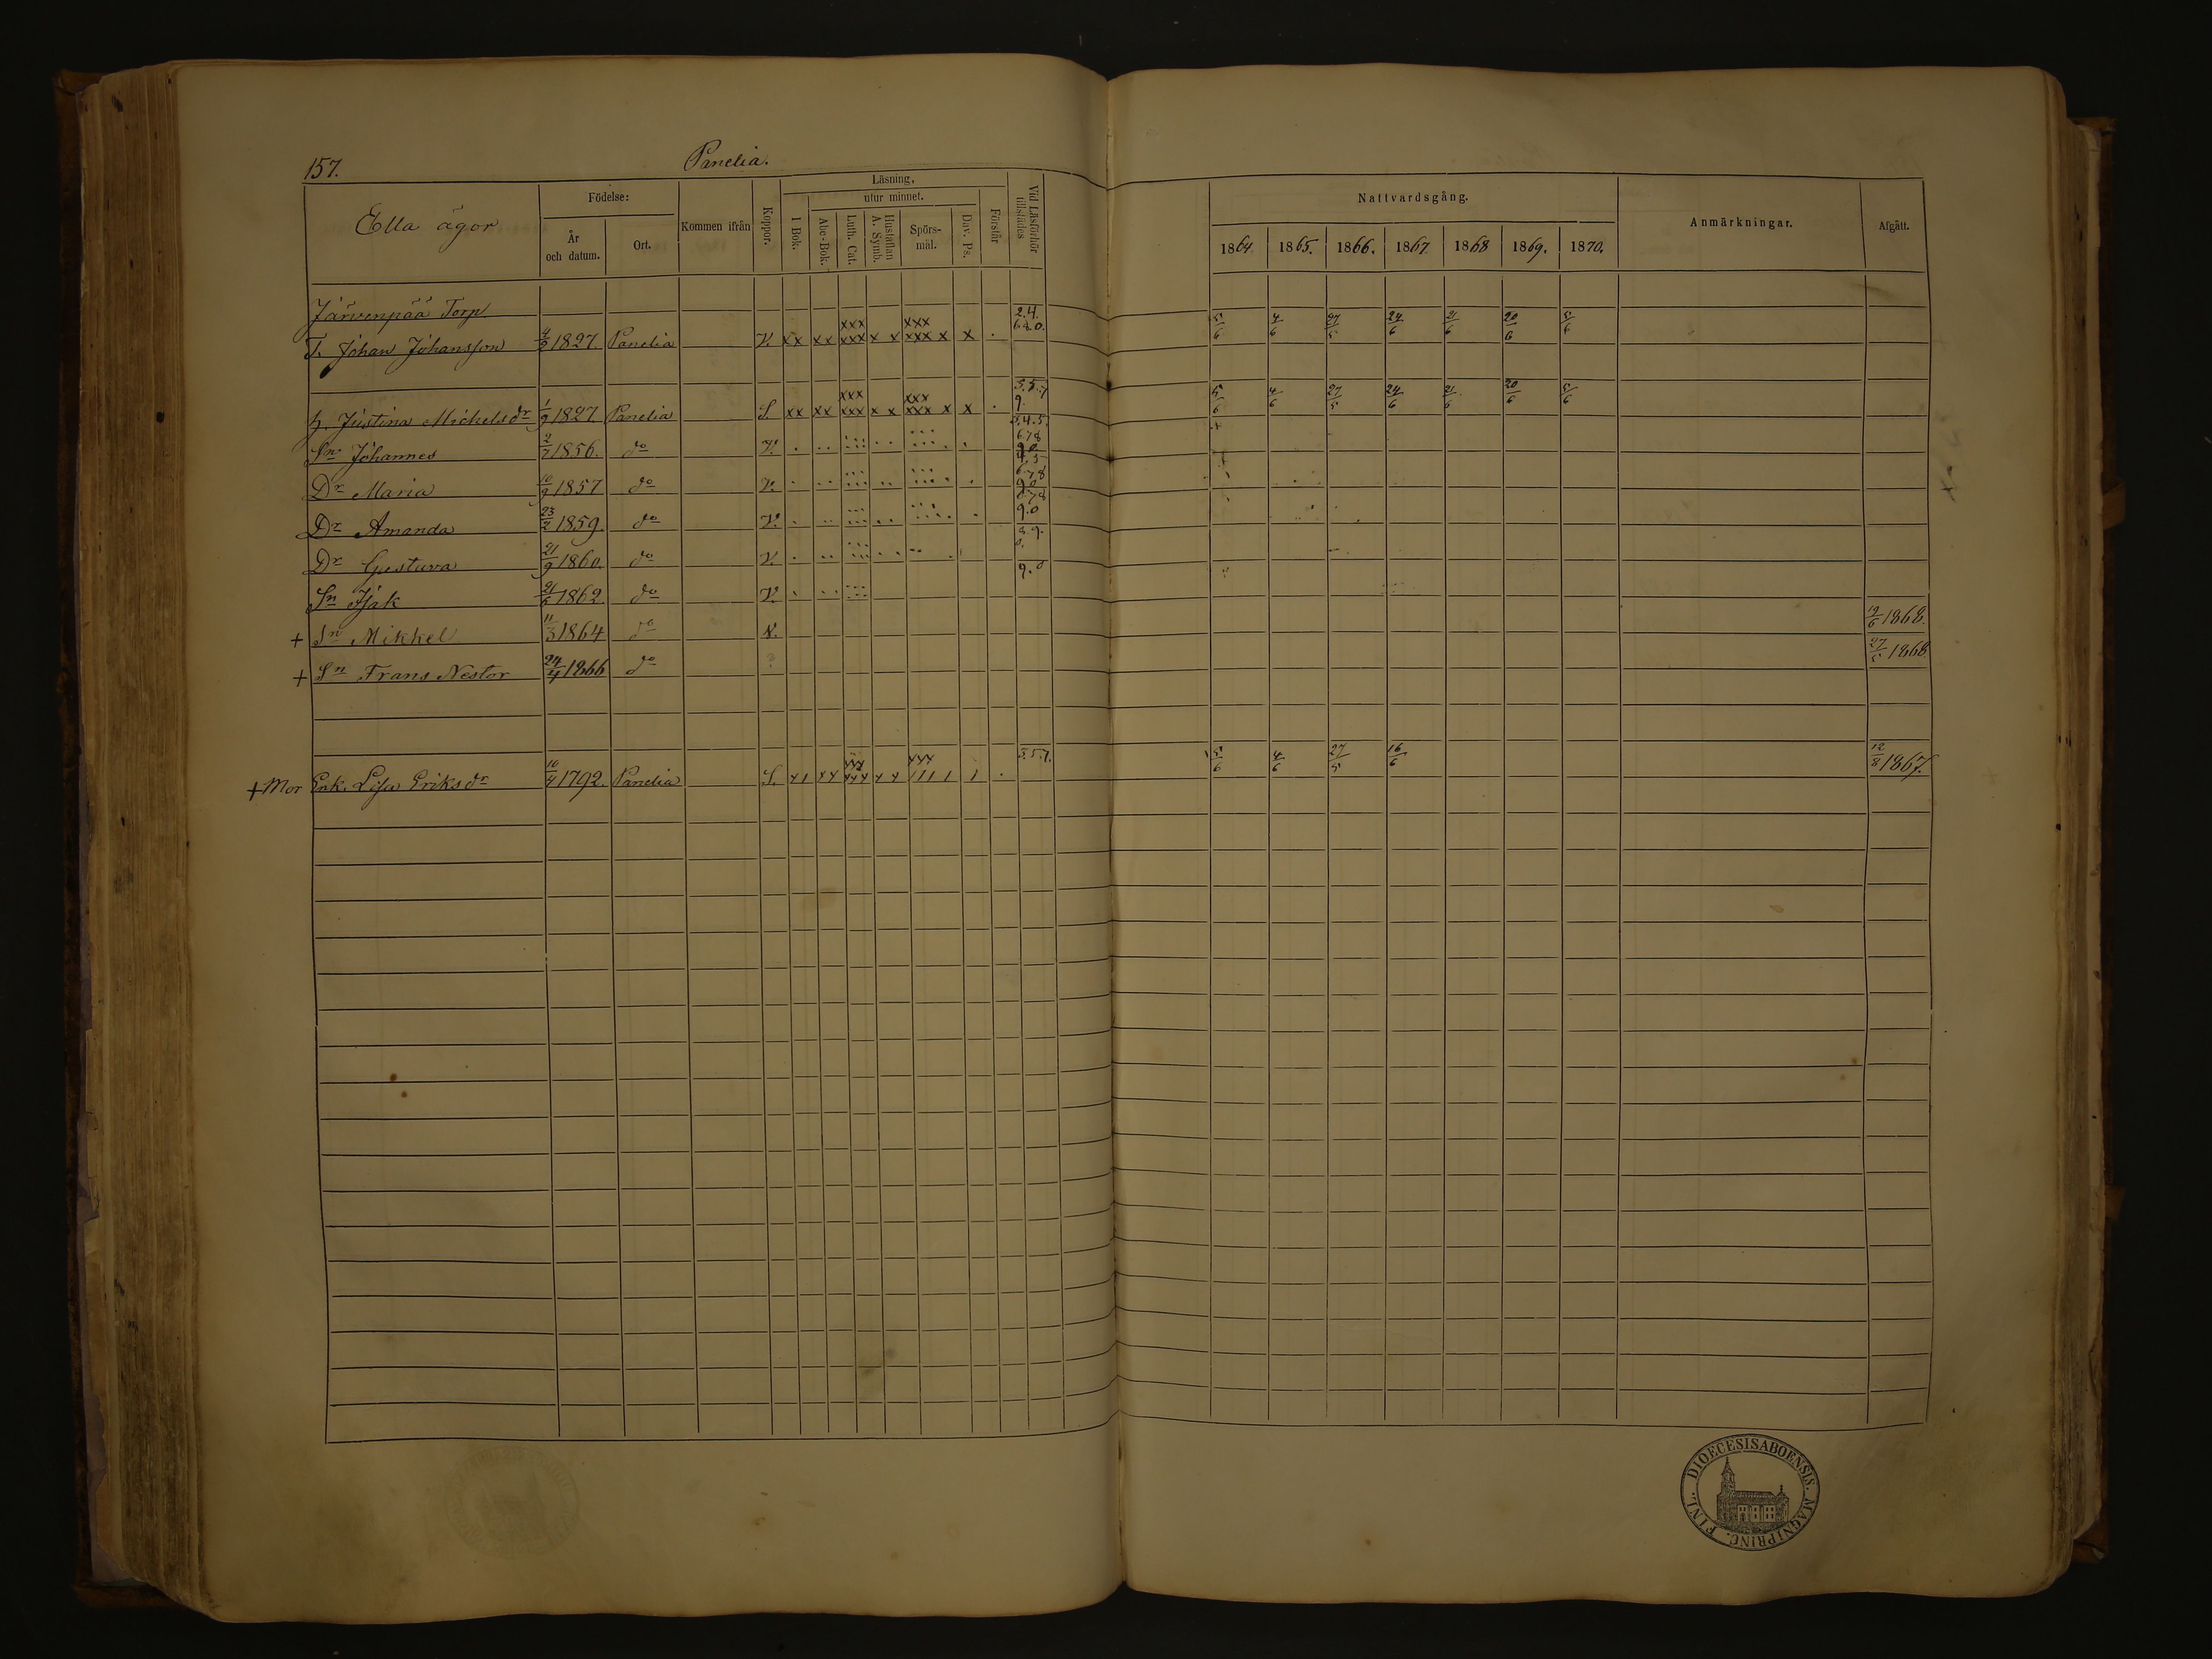 157. Panelia.
Ella ägor
Födelse:
År och datum.
Ort.
Kommen ifrån
Koppor.
Läsning.
I Bok.
utur minnet.
Abc-Bok.
Luth. Cat.
Hustaflan A. Symb.
Spörs-mål.
Dav. Ps.
Förstår
Vid Läsförhör tillstädes
Nattvardsgång.
1864 1865. 1866. 1867 1868 1869. 1870.
Anmärkningar.
Afgått.
Järvenpää Torp.
T. Johan Johansson 1827 Panelia V. xx xx xxx xxx x x xxx xxx x x . 2.4. 6.8.0. 5/6 4/6 27/5 24/6 21/6 20/6 5/6
h. Justina Mickelsdr 1/9 1827. Panelia S. xx xx xxx xxx x x xxx xxx x x . 3.5.7 9. 5/6 4/6 27/5 24/6 21/6 20/6 5/6
Sn Johannes 2/7 1856. do V. 3.4.5. 678 9.0
Dr Maria 10/9 1857 do V. 4.5 6.78 9.0
Dr Amanda 23/2 1859. do V. 678 9.0
Dr Gustava 21/9 1860. do V. 8.9. 0.
Sn Isak 21/6 1862 do V. 9.0
+ Sn Mikkel 11/3 1864 do V. 19/6 1868.
+ Sn Frans Nestor 24/4 1866 do 27/5 1868
+ Mor Enk. Lisa Eriksdr 10/4 1792. Panelia S. 3.5.7. 5/6 4/6 27/5 16/6 12/8 1867.
DIOECESIS ABOENSIS. MAGNI PRINC. FINL.